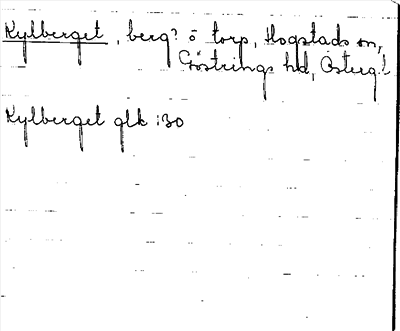 Kylberget, berg? o torp, Hogstads sn,
Göstrings hd, Österg.l
Kylberget glk :30